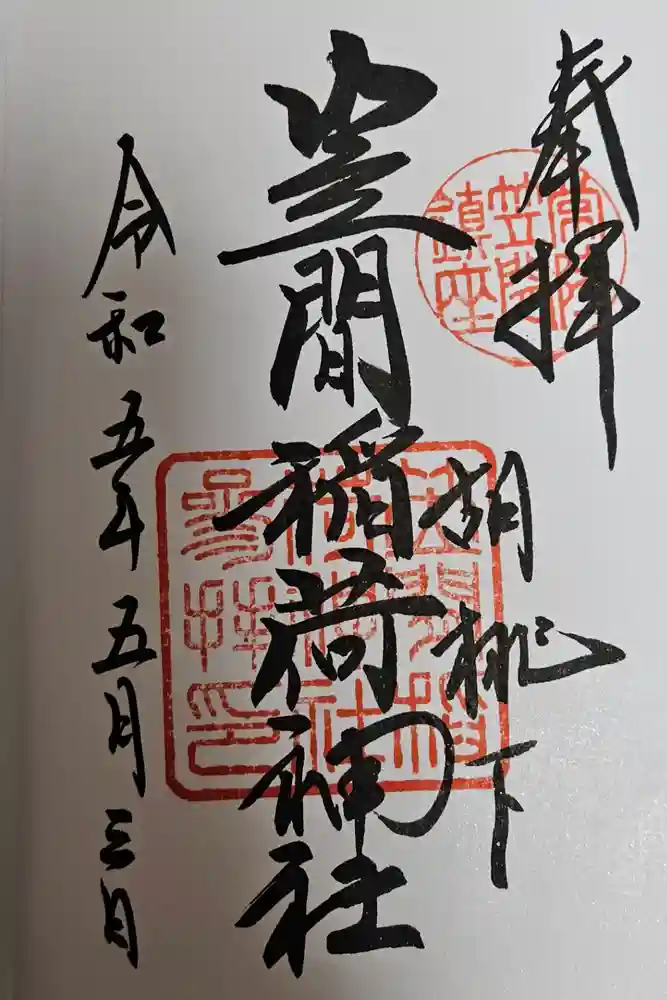 奉拝
胡桃下
笠間稲荷神社
令和五年五月三日
常陸
笠間
鎮座
笠間稲
荷神社
参拝印